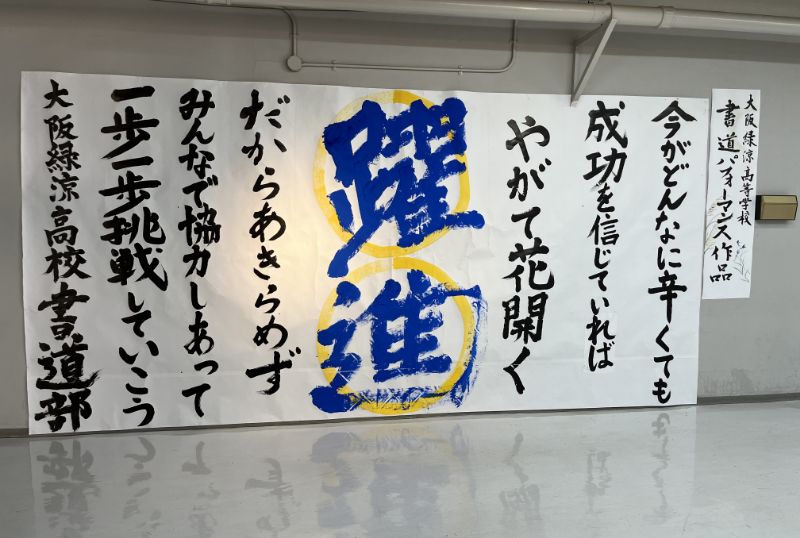 大阪緑涼高等学校
書道パフォーマンス作品
今がどんなに辛くても
成功を信じていれば
やがて花開く
躍進
だからあきらめず
みんなで協力しあって
一歩一歩挑戦していこう
大阪緑涼高校書道部